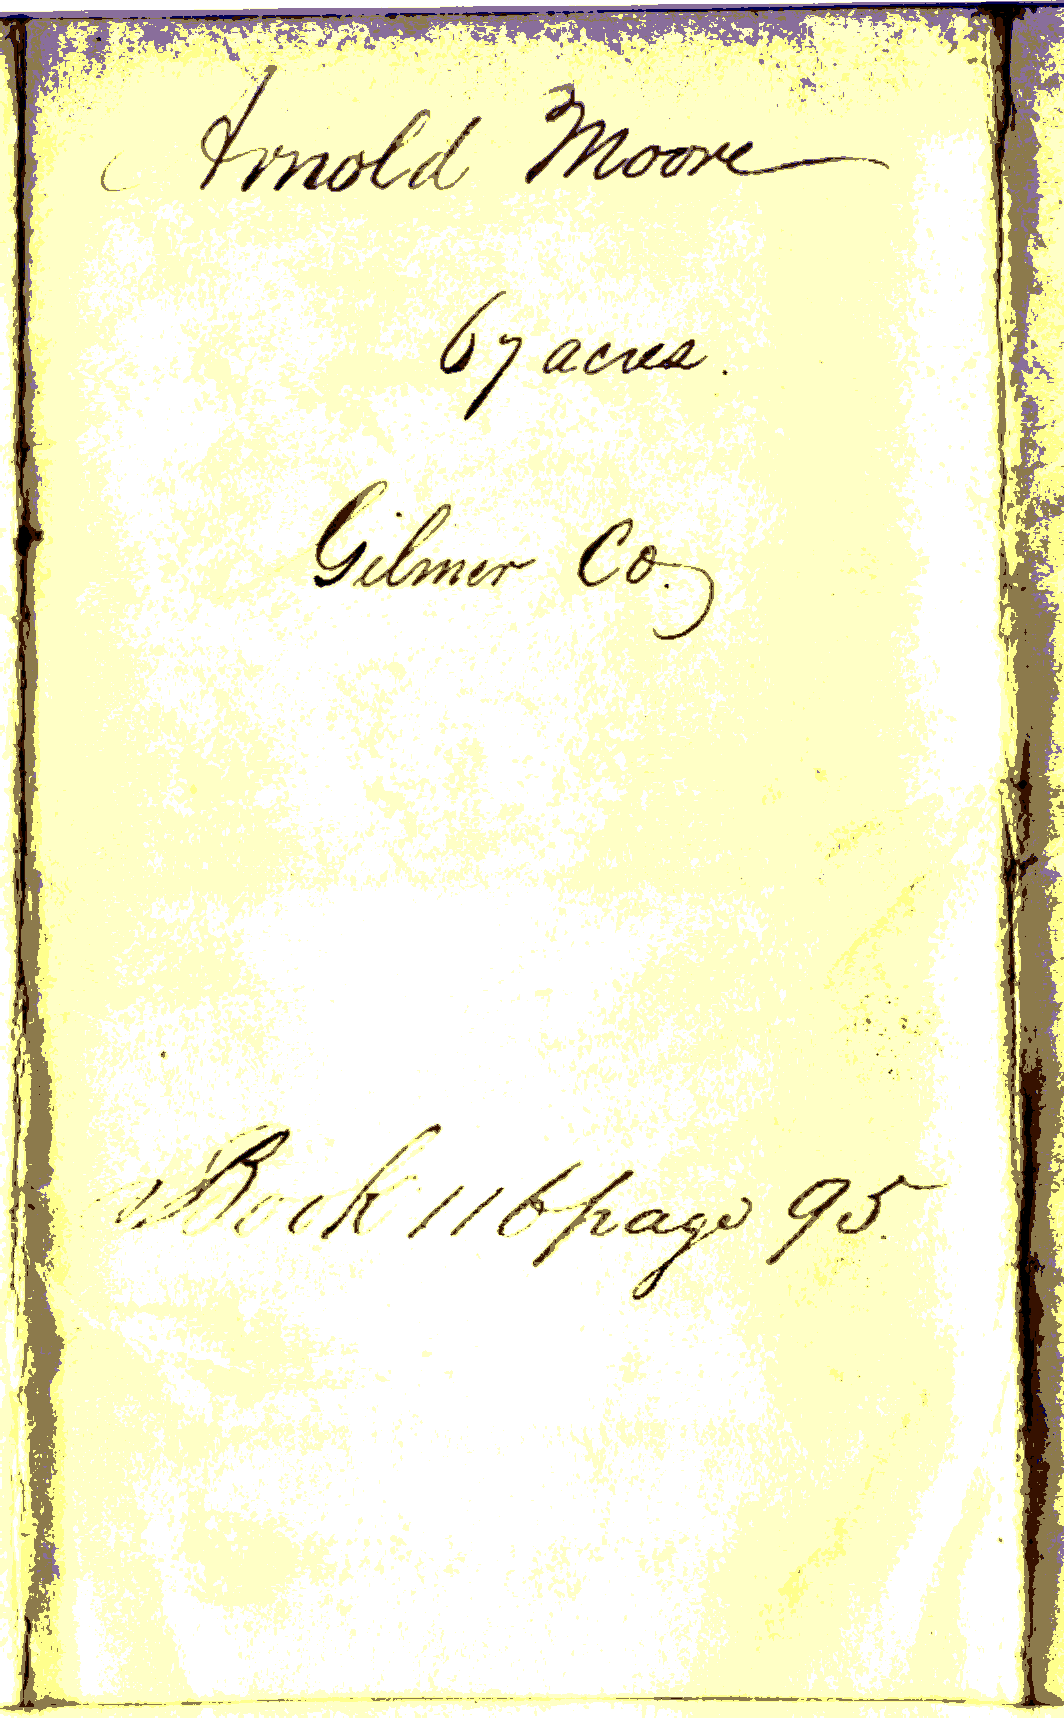 Arnold Moore
67 acres.
Gilmer Co.
Book 116 page 95.